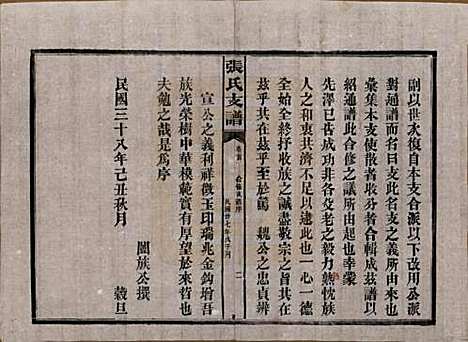 剛以世次復自本支合派以下改用公派
對通譜而名曰支此名支之義所由來也
彙集本支使散者收分者合輯成茲譜以
紹通譜此合修之議所由起也千秋偉業
先澤已舊成功非易各爻老之毅力熱忱族
人之和衷共濟不足以逮此也一心一德
全始全終抒收族之誠盡敬宗之旨其在
茲乎其在茲乎至於鶴 魏公之忠貞辨
張氏支譜
卷首
民國卅七年戊子刊
二
宣公之義利祥徵玉印瑞兆金鈎增吾
族光榮樹中華模範實有厚望於將來也
夫勉之哉是爲序
民國三十八年己丑秋月 穀旦
闔族公撰